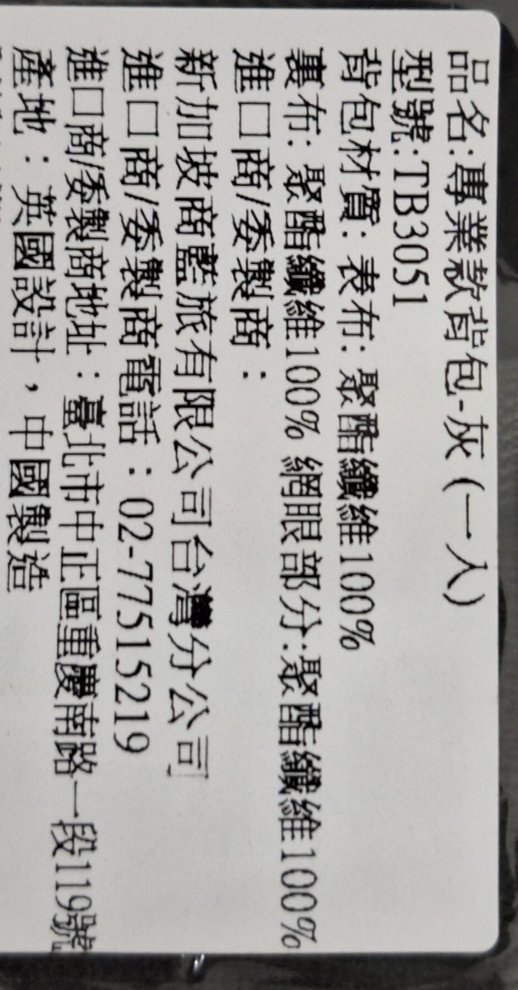 品名:專業款背包-灰 (一入)
型號:TB3051
背包材質: 表布: 聚酯纖維100%
裏布: 聚酯纖維100% 網眼部分:聚酯纖維100%
進口商/委製商：
新加坡商藍旅有限公司台灣分公司
進口商/委製商電話：02-77515219
進口商/委製商地址：臺北市中正區重慶南路一段119號
產地：英國設計，中國製造